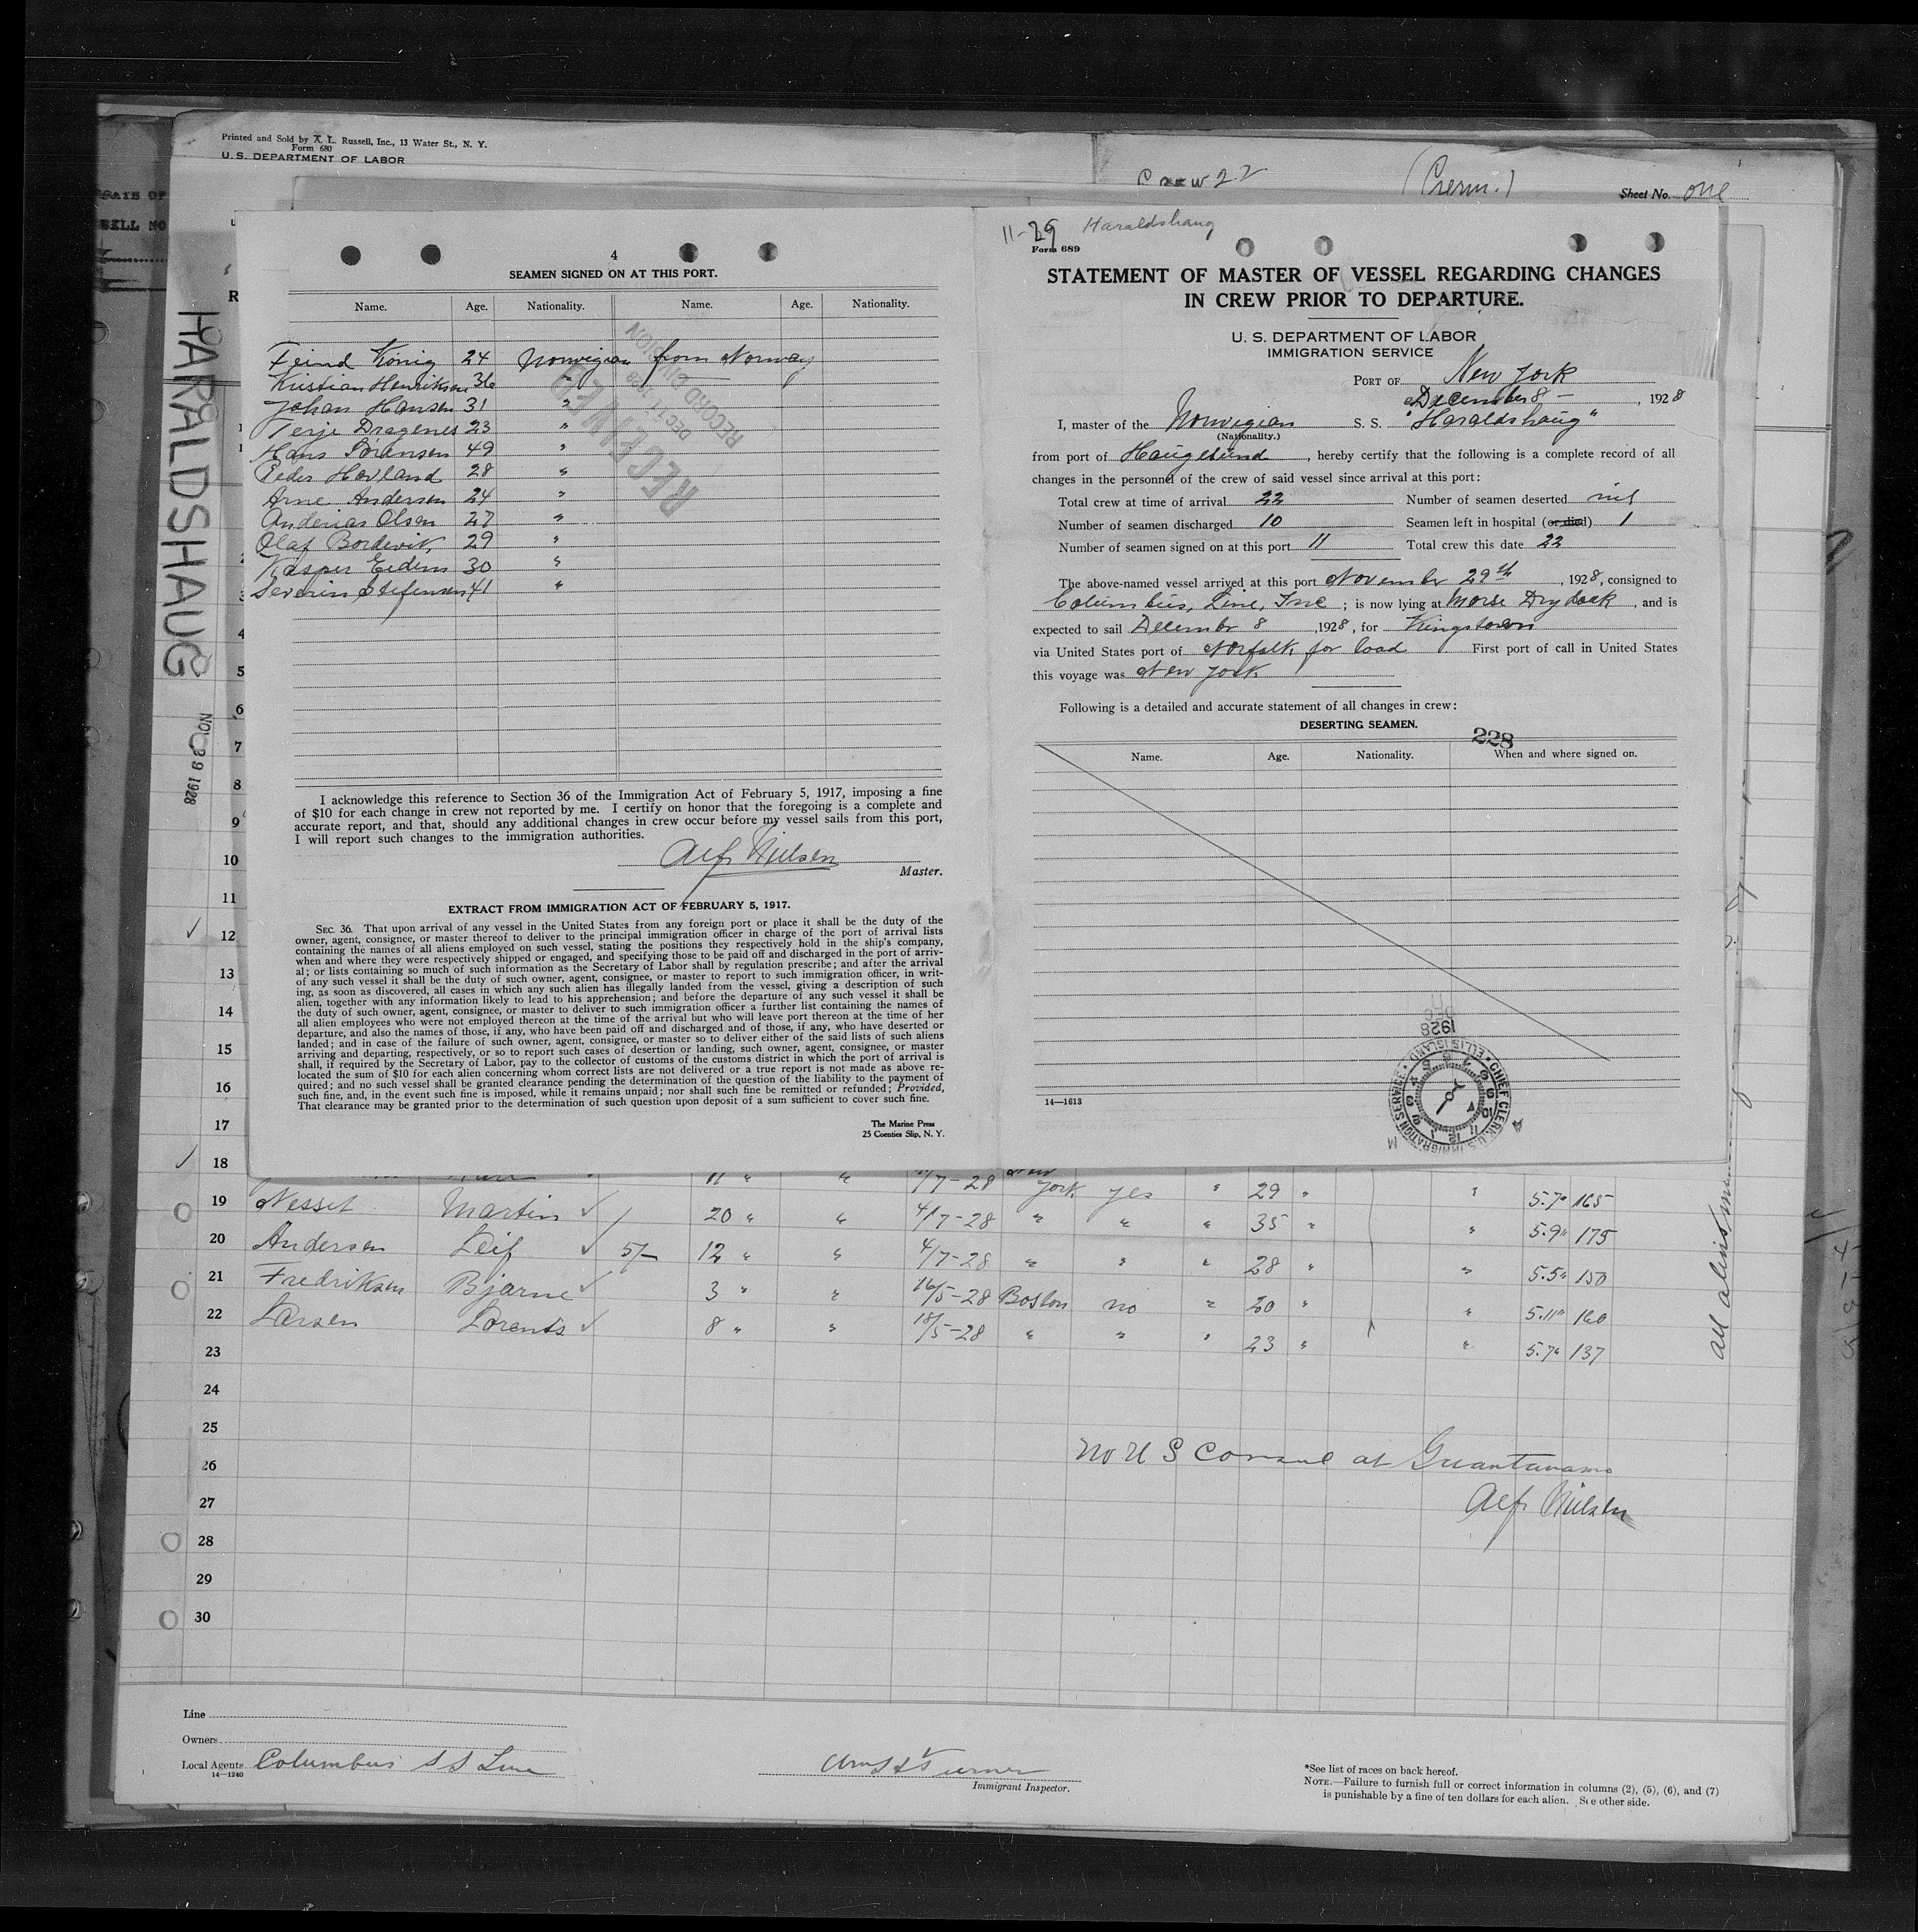 Printed and Sold by A. L. Russell, Inc., 13 Water St., N. Y.
Form 680
U. S. DEPARTMENT OF LABOR
Crew 22
Sheet No. one
HARALDSHAUG
NOV 29 1928
4
SEAMEN SIGNED ON AT THIS PORT.
Name. Age. Nationality. Name. Age. Nationality.
König 24 Norwigian from Norway
Kristian Henriksen 36 "
Johan Hansen 31 "
Terje Dragenes 23 "
Hans Sörensen 49 "
Peder Hovland 28 "
Arne Andersen 24 "
Andenias Olsen 27 "
Olaf Bordevik 29 "
Kasper Eidem 30 "
Severin Stefensen 41 "
RECEIVED
DEC 11 1928
RECORD DIVISION
I acknowledge this reference to Section 36 of the Immigration Act of February 5, 1917, imposing a fine
of $10 for each change in crew not reported by me. I certify on honor that the foregoing is a complete and
accurate report, and that, should any additional changes in crew occur before my vessel sails from this port,
I will report such changes to the immigration authorities.
Alf Nielsen
Master.
EXTRACT FROM IMMIGRATION ACT OF FEBRUARY 5, 1917.
SEC. 36. That upon arrival of any vessel in the United States from any foreign port or place it shall be the duty of the
owner, agent, consignee, or master thereof to deliver to the principal immigration officer in charge of the port of arrival lists
containing the names of all aliens employed on such vessel, stating the positions they respectively hold in the ship's company,
when and where they were respectively shipped or engaged, and specifying those to be paid off and discharged in the port of arriv-
al; or lists containing so much of such information as the Secretary of Labor shall by regulation prescribe; and after the arrival
of any such vessel it shall be the duty of such owner, agent, consignee, or master to report to such immigration officer, in writ-
ing, as soon as discovered, all cases in which any such alien has illegally landed from the vessel, giving a description of such
alien, together with any information likely to lead to his apprehension; and before the departure of any such vessel it shall be
the duty of such owner, agent, consignee, or master to deliver to such immigration officer a further list containing the names of
all alien employees who were not employed thereon at the time of the arrival but who will leave port thereon at the time of her
departure, and also the names of those, if any, who have been paid off and discharged and of those, if any, who have deserted or
landed; and in case of the failure of such owner, agent, consignee, or master so to deliver either of the said lists of such aliens
arriving and departing, respectively, or so to report such cases of desertion or landing, such owner, agent, consignee, or master
shall, if required by the Secretary of Labor, pay to the collector of customs of the customs district in which the port of arrival is
located the sum of $10 for each alien concerning whom correct lists are not delivered or a true report is not made as above re-
quired; and no such vessel shall be granted clearance pending the determination of the question of the liability to the payment of
such fine, and, in the event such fine is imposed, while it remains unpaid; nor shall such fine be remitted or refunded; Provided,
That clearance may be granted prior to the determination of such question upon deposit of a sum sufficient to cover such fine.
The Marine Press
25 Coenties Slip, N. Y.
11-29 Haraldshaug
Form 689
STATEMENT OF MASTER OF VESSEL REGARDING CHANGES
IN CREW PRIOR TO DEPARTURE.
U. S. DEPARTMENT OF LABOR
IMMIGRATION SERVICE
PORT OF New York
December 8 - , 1928
I, master of the Norwigian S. S. "Haraldshaug"
(Nationality.)
from port of Haugesund , hereby certify that the following is a complete record of all
changes in the personnel of the crew of said vessel since arrival at this port:
Total crew at time of arrival 22 Number of seamen deserted nil
Number of seamen discharged 10 Seamen left in hospital (or died) 1
Number of seamen signed on at this port 11 Total crew this date 22
The above-named vessel arrived at this port November 29th , 1928, consigned to
Columbus, Line, Inc ; is now lying at Morse Dry dock , and is
expected to sail December 8 , 1928, for Kingstown
via United States port of Norfolk for load First port of call in United States
this voyage was New York
Following is a detailed and accurate statement of all changes in crew:
DESERTING SEAMEN.
228
Name. Age. Nationality. When and where signed on.
14—1613
DEC 11
1928
CHIEF CLERK, U.S. IMMIGRATION SERVICE • ELLIS ISLAND •
4
5
6
7
8
9
10
11
12
13
14
15
16
17
18
11 " " /7-28 New York yes " 29 " " 5.7" 165
19 Nesset Martin 20 " " 4/7-28 " " " 35 " " 5.9" 175
20 Andersen Leif 5/- 12 " " 4/7-28 " " " 28 " " 5.5" 150
21 Fredriksen Bjarne 3 " " 16/5-28 Boston no " 20 " " 5.11" 160
22 Larsen Lorents 8 " " 18/5-28 " " " 23 " " 5.7" 137
23
24
25
26
27
28
29
30
No U S Consul at Guantanamo
Alf Nielsen
Line
Owners
Local Agents Columbus S S Line
14—1240
Immigrant Inspector.
*See list of races on back hereof.
NOTE.—Failure to furnish full or correct information in columns (2), (5), (6), and (7)
is punishable by a fine of ten dollars for each alien. See other side.